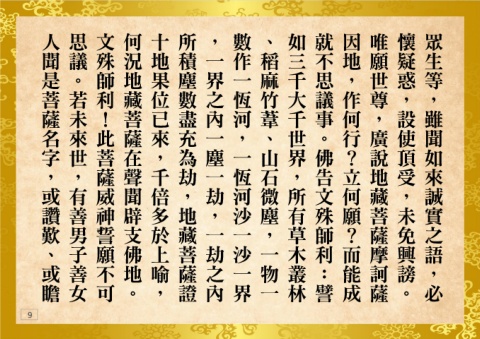 眾生等，雖聞如來誠實之語，必
懷疑惑，設使頂受，未免興謗。
唯願世尊，廣說地藏菩薩摩訶薩
因地，作何行？立何願？而能成
就不思議事。佛告文殊師利：譬
如三千大千世界，所有草木叢林
、稻麻竹葦、山石微塵，一物一
數作一恆河，一恆河沙一沙一界
，一界之內一塵一劫，一劫之內
所積塵數盡充為劫，地藏菩薩證
十地果位已來，千倍多於上喻，
何況地藏菩薩在聲聞辟支佛地。
文殊師利！此菩薩威神誓願不可
思議。若未來世，有善男子善女
人聞是菩薩名字，或讚歎、或瞻
9